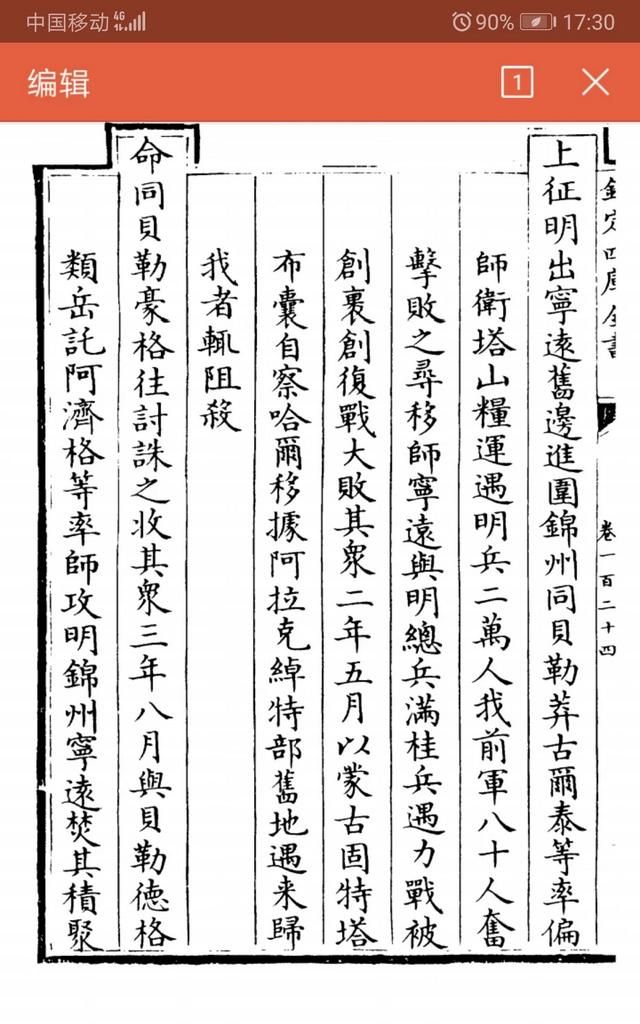 中国移动 4G 90% 17:30
编辑 1
欽定四庫全書
卷一百二十四
上征明出寧遠舊邊進圍錦州同貝勒莽古爾泰等率偏
師衛塔山糧運遇明兵二萬人我前軍八十人奮
擊敗之尋移師寧遠與明總兵滿桂兵遇力戰被
創裹創復戰大敗其衆二年五月以蒙古固特塔
布囊自察哈爾移據阿拉克綽特部舊地遇来歸
我者輒阻殺
命同貝勒豪格往討誅之收其衆三年八月與貝勒德格
類岳託阿濟格等率師攻明錦州寧遠焚其積聚